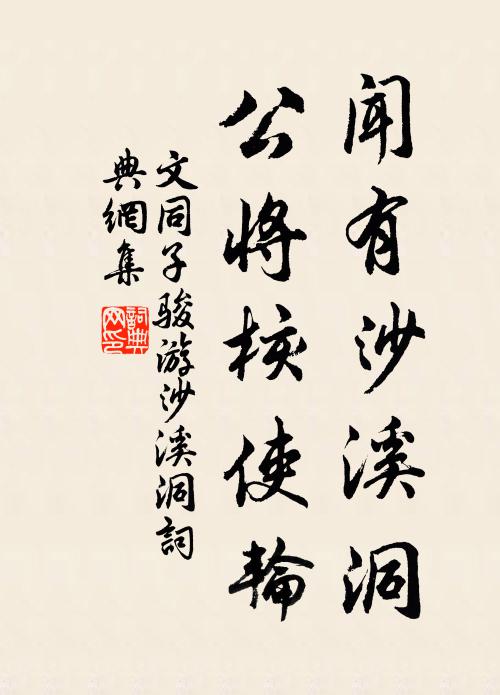 聞有沙溪洞
公將核使輪
文同子駿游沙溪洞詞
典網集
詞典网印